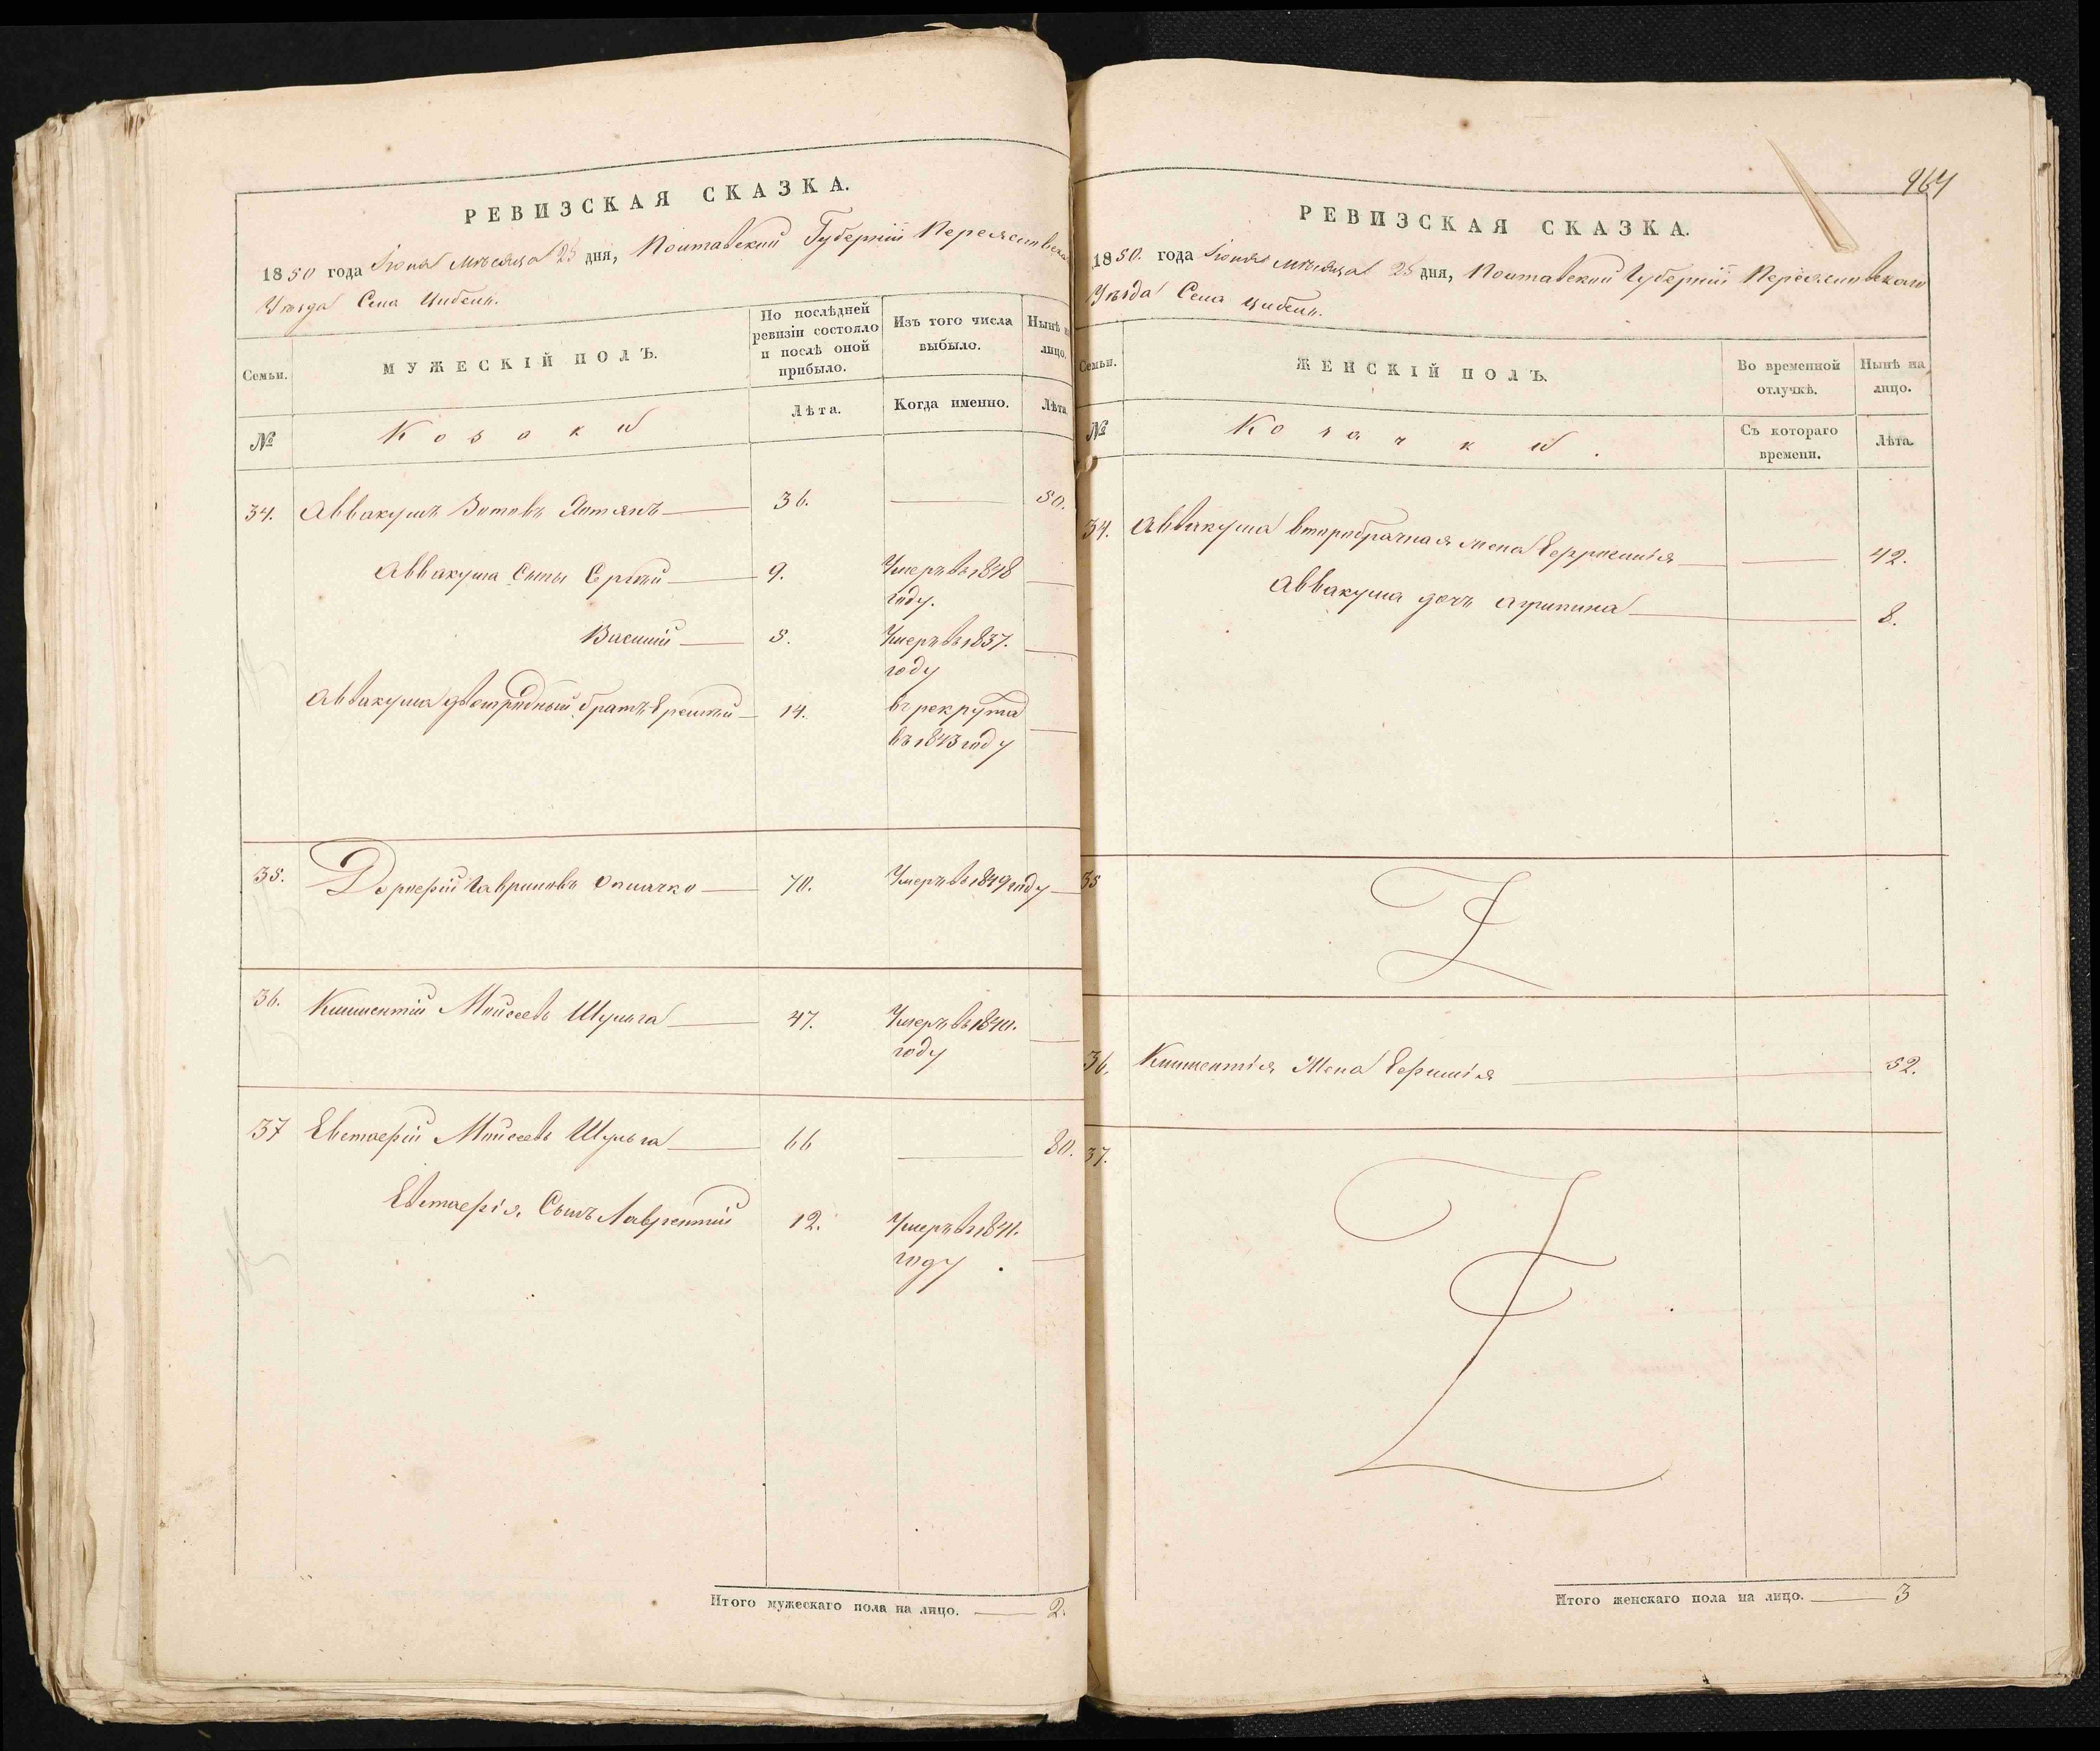 РЕВИЗСКАЯ СКАЗКА.
1850 года Іюня мѣсяца 25 дня, Полтавской Губерніи Переяславска
Уѣзда Села Цибель.
Семьи.
МУЖЕСКІЙ ПОЛЪ.
По послѣдней ревизіи состояло и послѣ оной прибыло.
Изъ того числа выбыло.
Нынѣ на лицо.
№
Козаки
Лѣта.
Когда именно.
Лѣта.
34. Аввакумъ Зотовъ 36. 50.
Аввакума Сыны Сергѣй 9. Умеръ въ 1848
году.
Василій 5. Умеръ въ 1837.
году
Аввакума двоюродный братъ Еремѣй 14. въ рекрута
въ 1843 году
35. Дорофей Гавриловъ 70. Умеръ въ 1849 году
36. Климентій Моисеевъ Шульга 47. Умеръ въ 1840.
году
37 Евстафій Моисеевъ Шульга 66 80.
Евстафія Сынъ Лаврентій 12. Умеръ въ 1841.
году
Итого мужескаго пола на лицо. 2.
964
РЕВИЗСКАЯ СКАЗКА.
1850. года Іюня мѣсяца 25 дня, Полтавской Губерніи Переяславскаго
Уѣзда Села Цибель.
Семьи.
ЖЕНСКІЙ ПОЛЪ.
Во временной отлучкѣ.
Нынѣ на лицо.
№
Козачки.
Съ котораго времени.
Лѣта.
34. Аввакума второбрачная жена Ефросинія 42.
Аввакума дочь Агрипина 8.
35
36. Климентія Жена Ефимія 52.
37.
Итого женскаго пола на лицо. 3